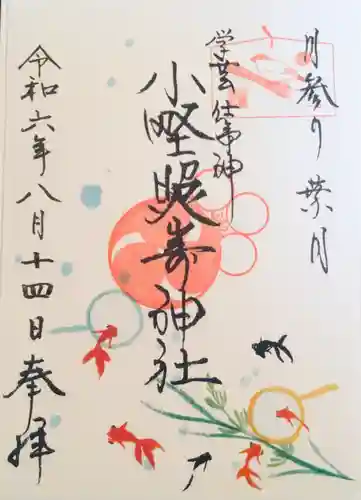 月参り 葉月
学芸 仕事 神
小野照崎神社
令和六年八月十四日 奉拝